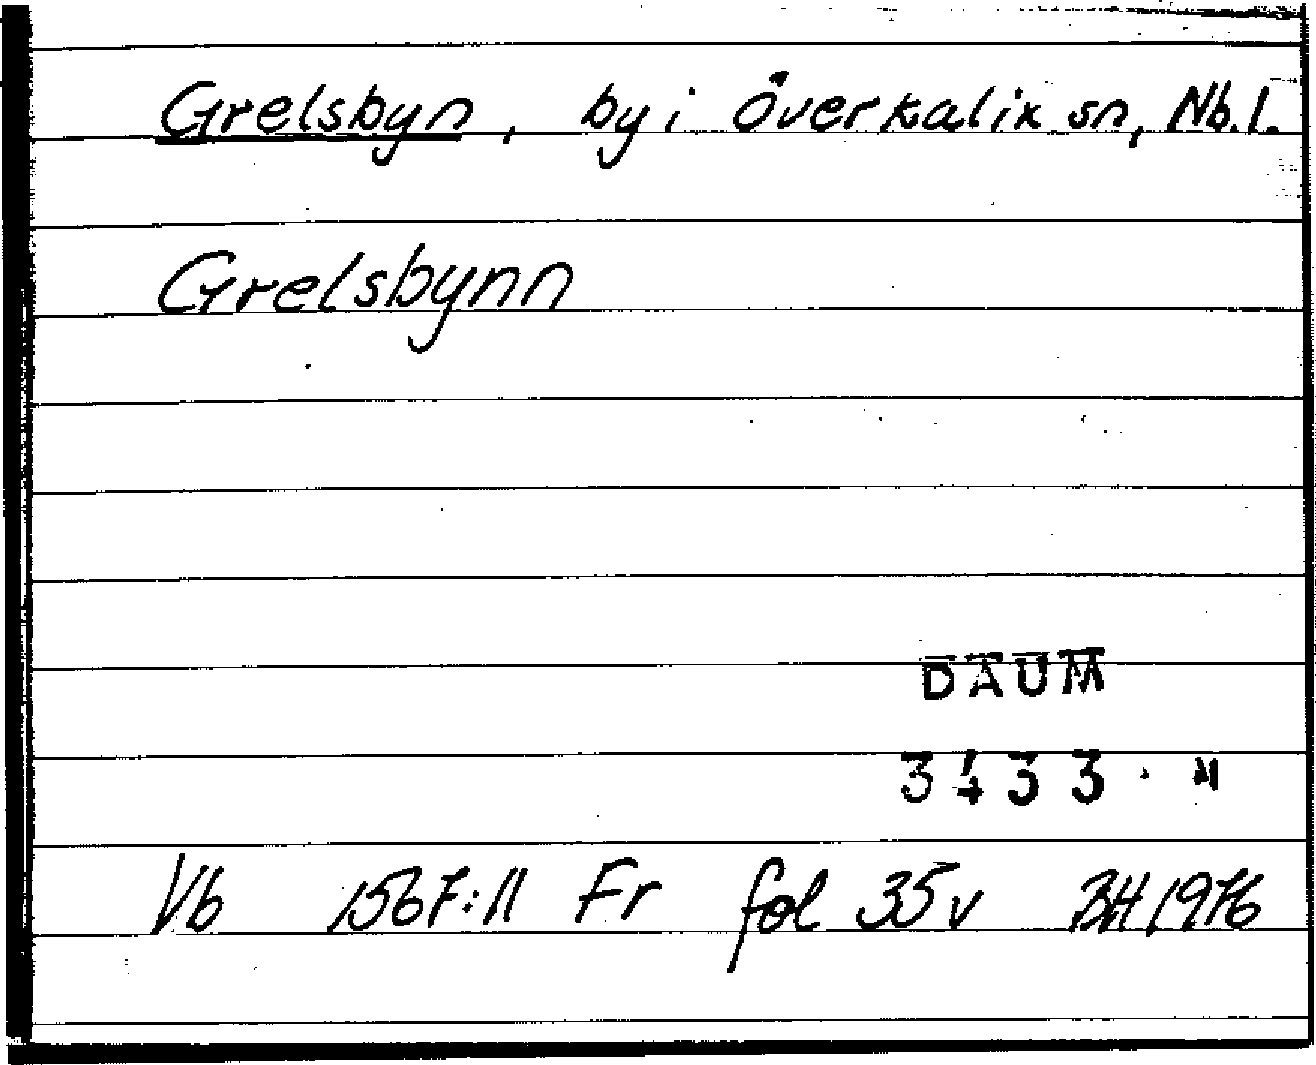 Grelsbyn, by i Överkalix sn, Nb.l.
Grelsbynn
DAUM
3433
Vb 1567:11 Fr fol 35v BH 1976